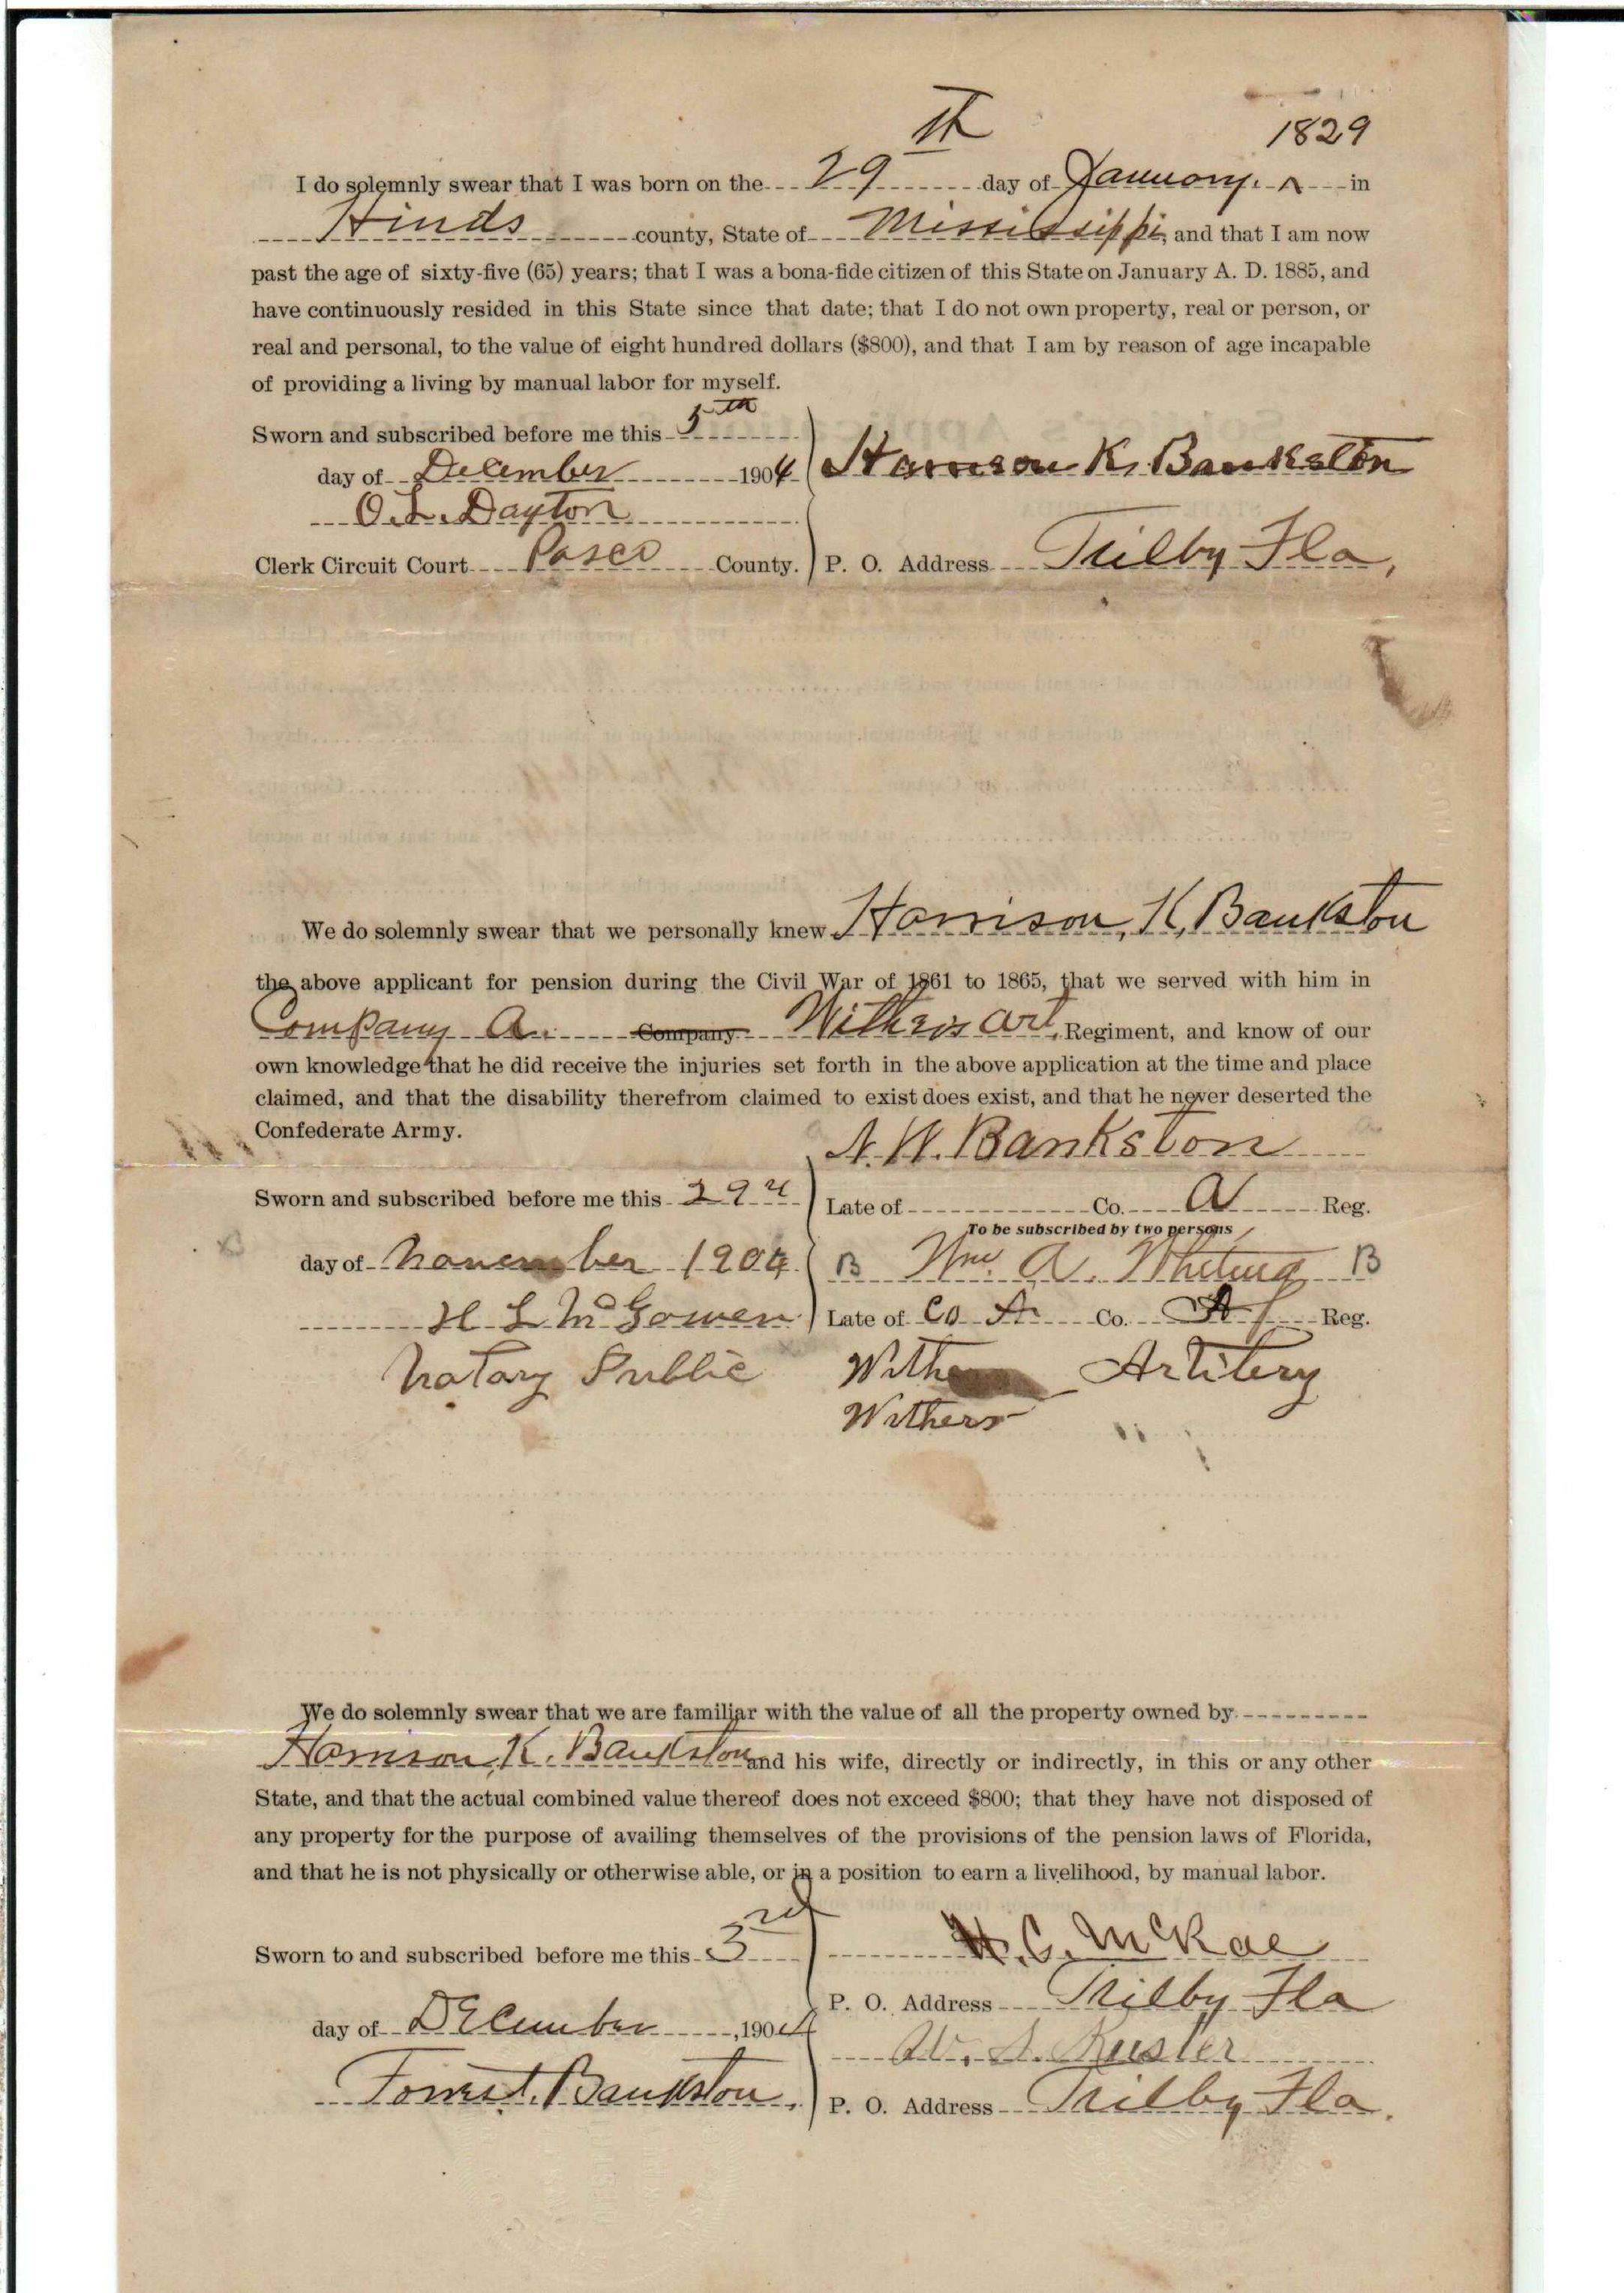 th
1829
I do solemnly swear that I was born on the 29 day of January. ^ in
Hinds county, State of Mississippi, and that I am now
past the age of sixty-five (65) years; that I was a bona-fide citizen of this State on January A. D. 1885, and
have continuously resided in this State since that date; that I do not own property, real or person, or
real and personal, to the value of eight hundred dollars ($800), and that I am by reason of age incapable
of providing a living by manual labor for myself.
Sworn and subscribed before me this 5th
day of December 1904 Harrison K. Bankston
O. L. Dayton
Clerk Circuit Court Pasco County. P. O. Address Trilby Fla,
We do solemnly swear that we personally knew Harrison, K, Bankston
the above applicant for pension during the Civil War of 1861 to 1865, that we served with him in
Company A. Company Withers Art, Regiment, and know of our
own knowledge that he did receive the injuries set forth in the above application at the time and place
claimed, and that the disability therefrom claimed to exist does exist, and that he never deserted the
Confederate Army.
N. W. Bankston
Sworn and subscribed before me this 29 Late of Co. A Reg.
To be subscribed by two persons
day of November 1904 B Wm. A. Whiting B
H L McGowen Late of Co A Co. Reg.
Notary Public Artilery
Withers
We do solemnly swear that we are familiar with the value of all the property owned by
Harrison, K. Bankston and his wife, directly or indirectly, in this or any other
State, and that the actual combined value thereof does not exceed $800; that they have not disposed of
any property for the purpose of availing themselves of the provisions of the pension laws of Florida,
and that he is not physically or otherwise able, or in a position to earn a livelihood, by manual labor.
Sworn to and subscribed before me this 3rd H. C. McRae
P. O. Address Trilby Fla
day of December, 1904
Forrest. Bankston. P. O. Address Trilby Fla.